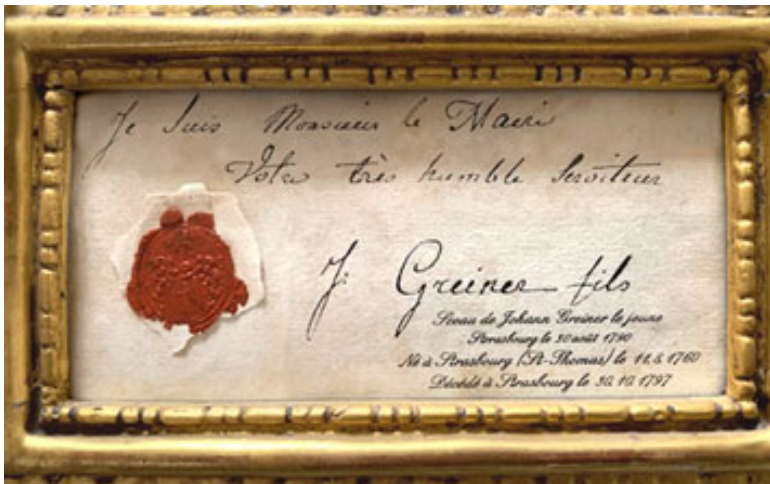 Je suis Monsieur le Maire
Votre très humble Serviteur
J. Greiner fils
Sceau de Johann Greiner le jeune
Strasbourg le 20 août 1790
Né à Strasbourg (St-Thomas) le 11. 5. 1760
Décédé à Strasbourg le 30. 10. 1797